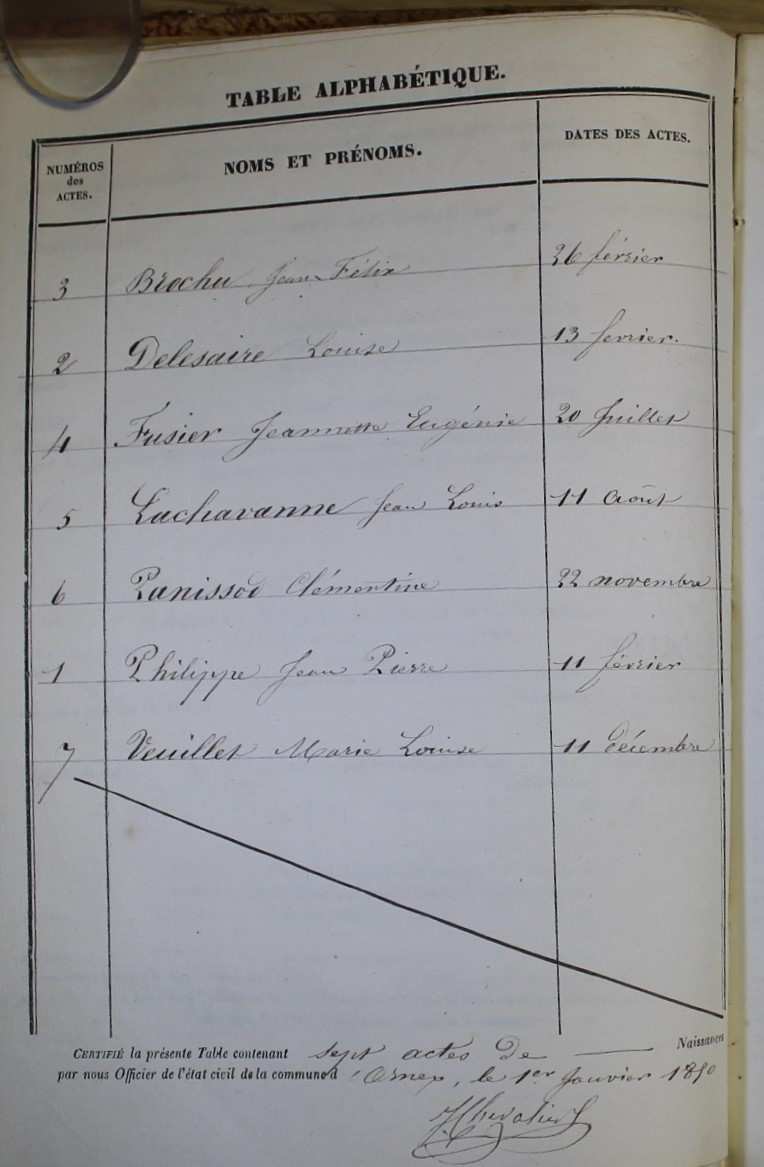 TABLE ALPHABÉTIQUE.
NUMÉROS des ACTES. NOMS ET PRÉNOMS. DATES DES ACTES.
3 Brochu Jean Félix 26 février
2 Delesaire Louise 13 fevrier.
4 Fusier Jeannette Eugénie 20 Juillet
5 Lachavanne Jean Louis 11 Août
6 Panissod Clémentine 22 novembre
1 Philippe Jean Pierre 11 février
7 Veuillet Marie Louise 11 décembre
CERTIFIÉ la présente Table contenant sept actes de Naissances
par nous Officier de l'état civil de la commune d'Arnex, le 1er Janvier 1850
J. Chevalier